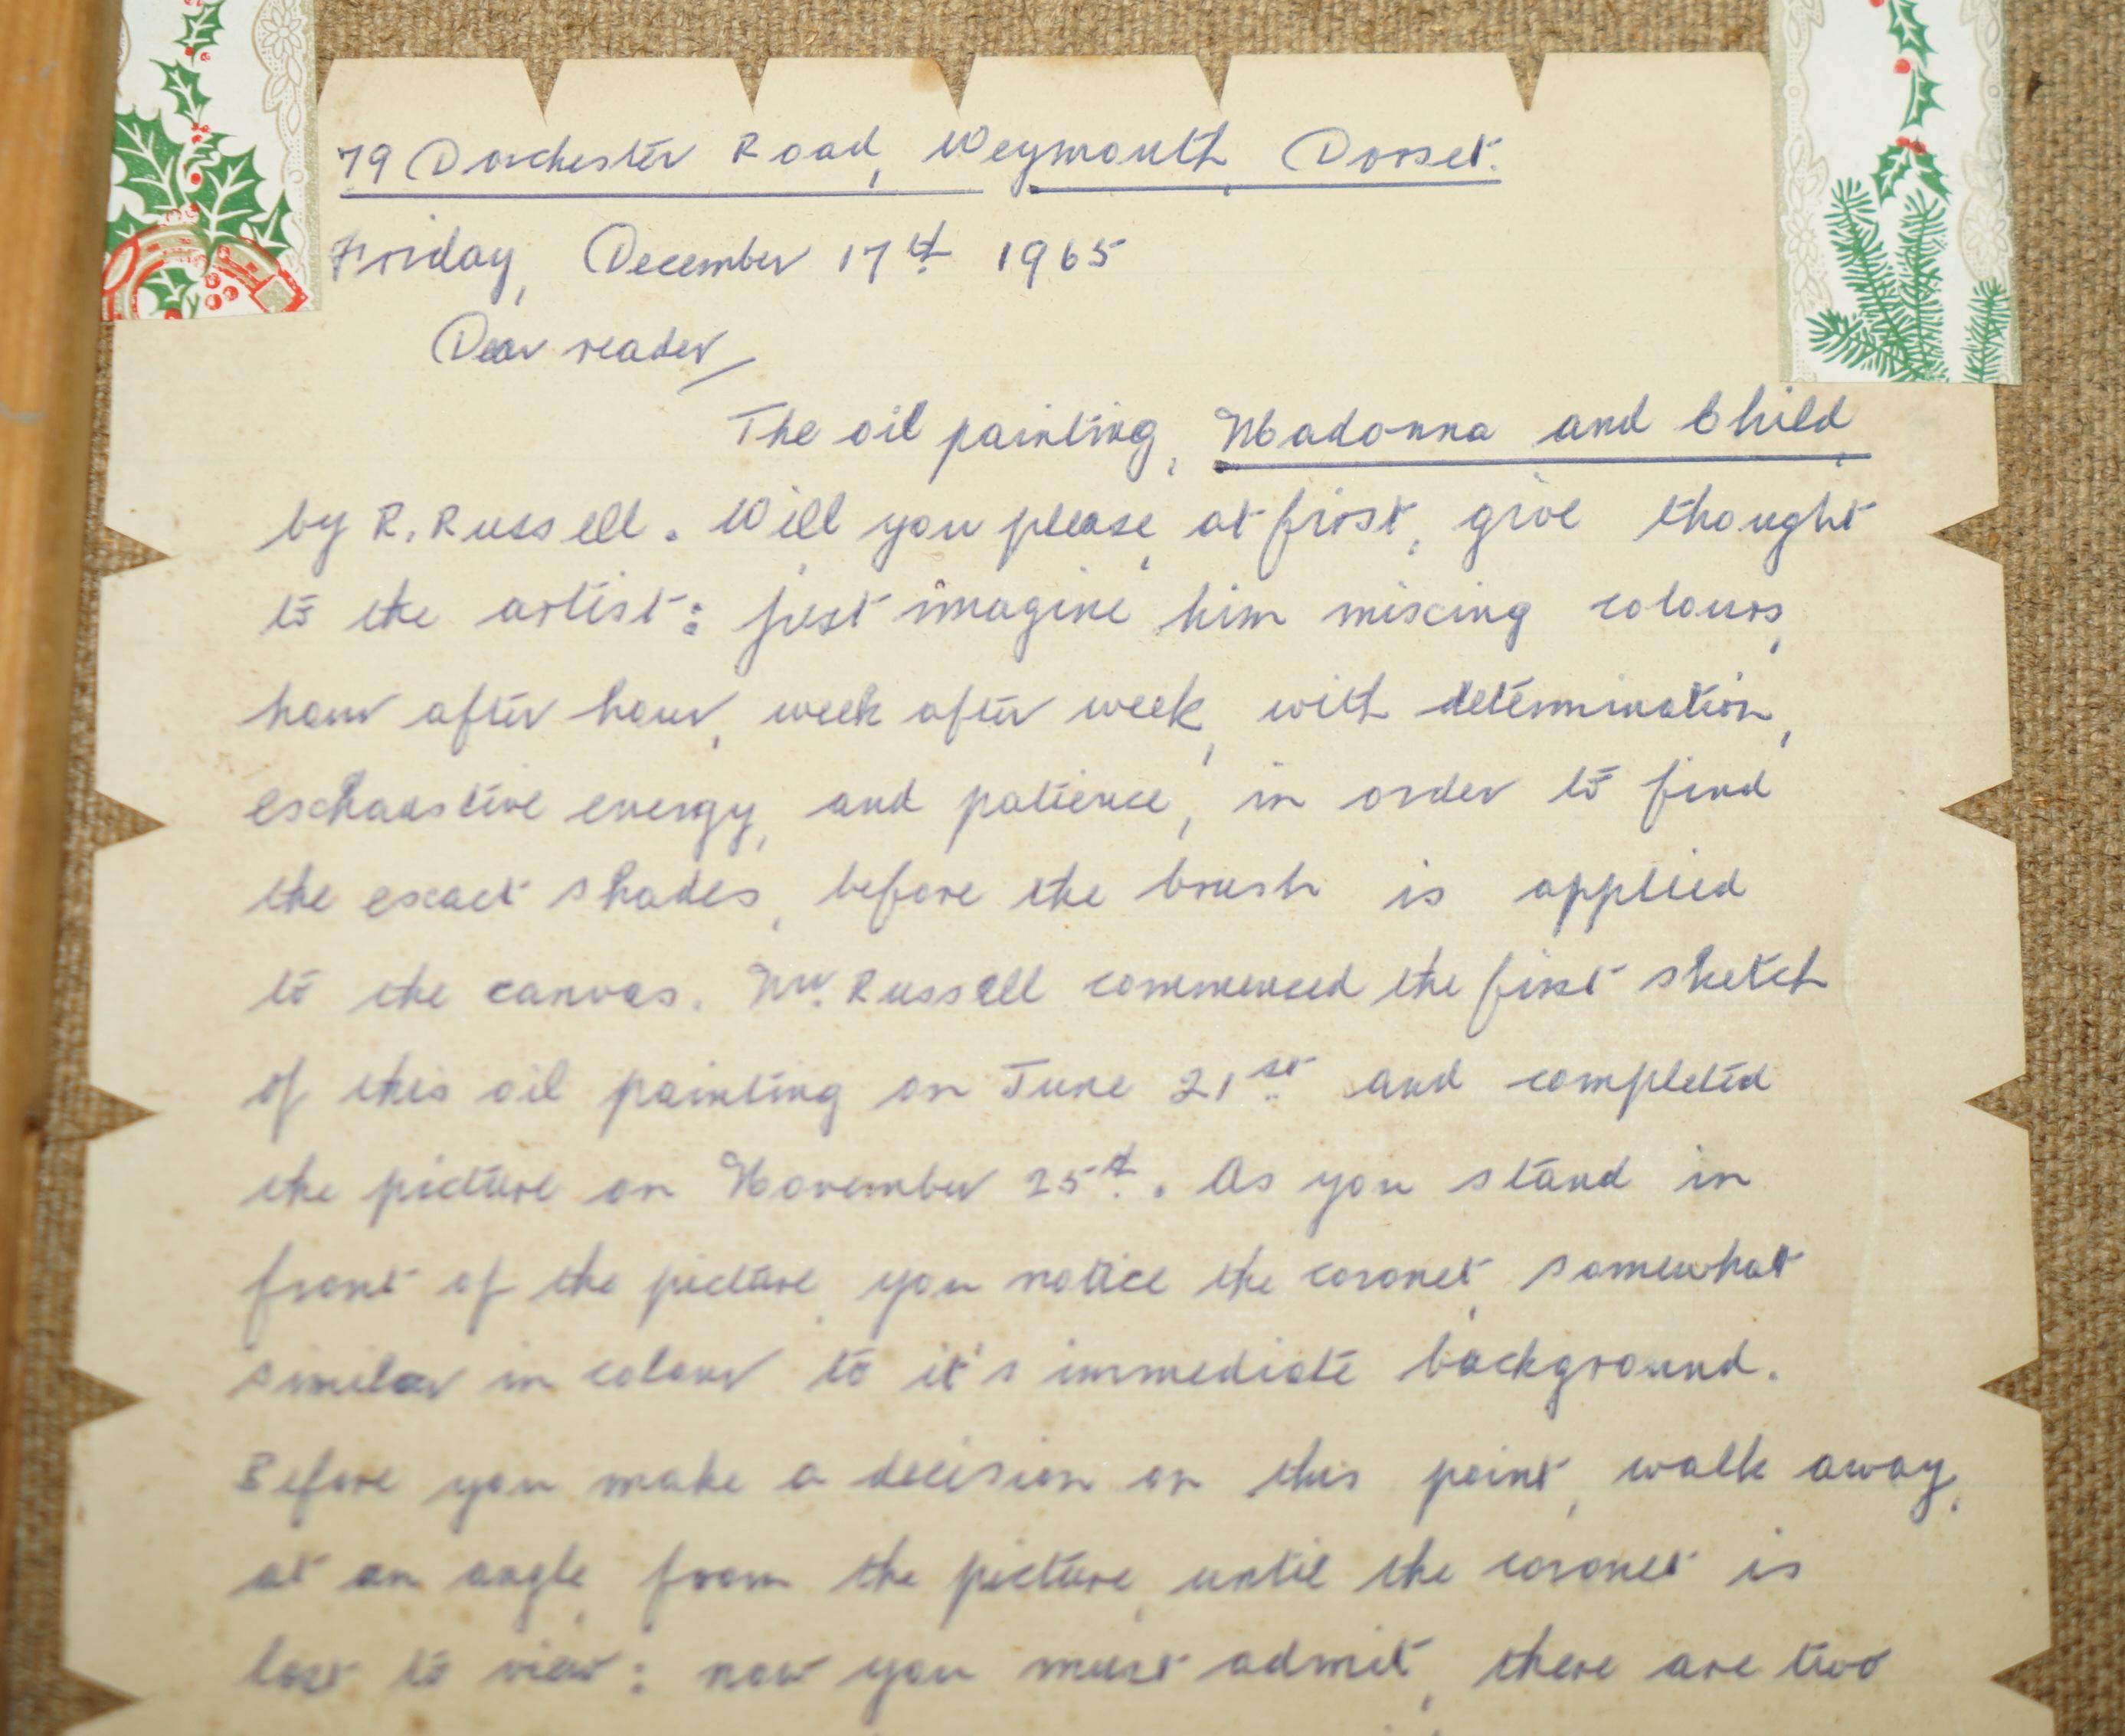 79 Dorchester Road, Weymouth, Dorset.
Friday, December 17th 1965
Dear reader,
The oil painting, Madonna and Child,
by R. Russell. Will you please, at first, give thought
to the artist: just imagine him mixing colours,
hour after hour, week after week, with determination,
exhaustive energy, and patience, in order to find
the exact shades, before the brush is applied
to the canvas. Mr. Russell commenced the first sketch
of this oil painting on June 21st and completed
the picture on November 25th. As you stand in
front of the picture, you notice the coronet, somewhat
similar in colour to it's immediate background.
Before you make a decision on this point, walk away,
at an angle, from the picture, until the coronet is
lost to view: now you must admit, there are two